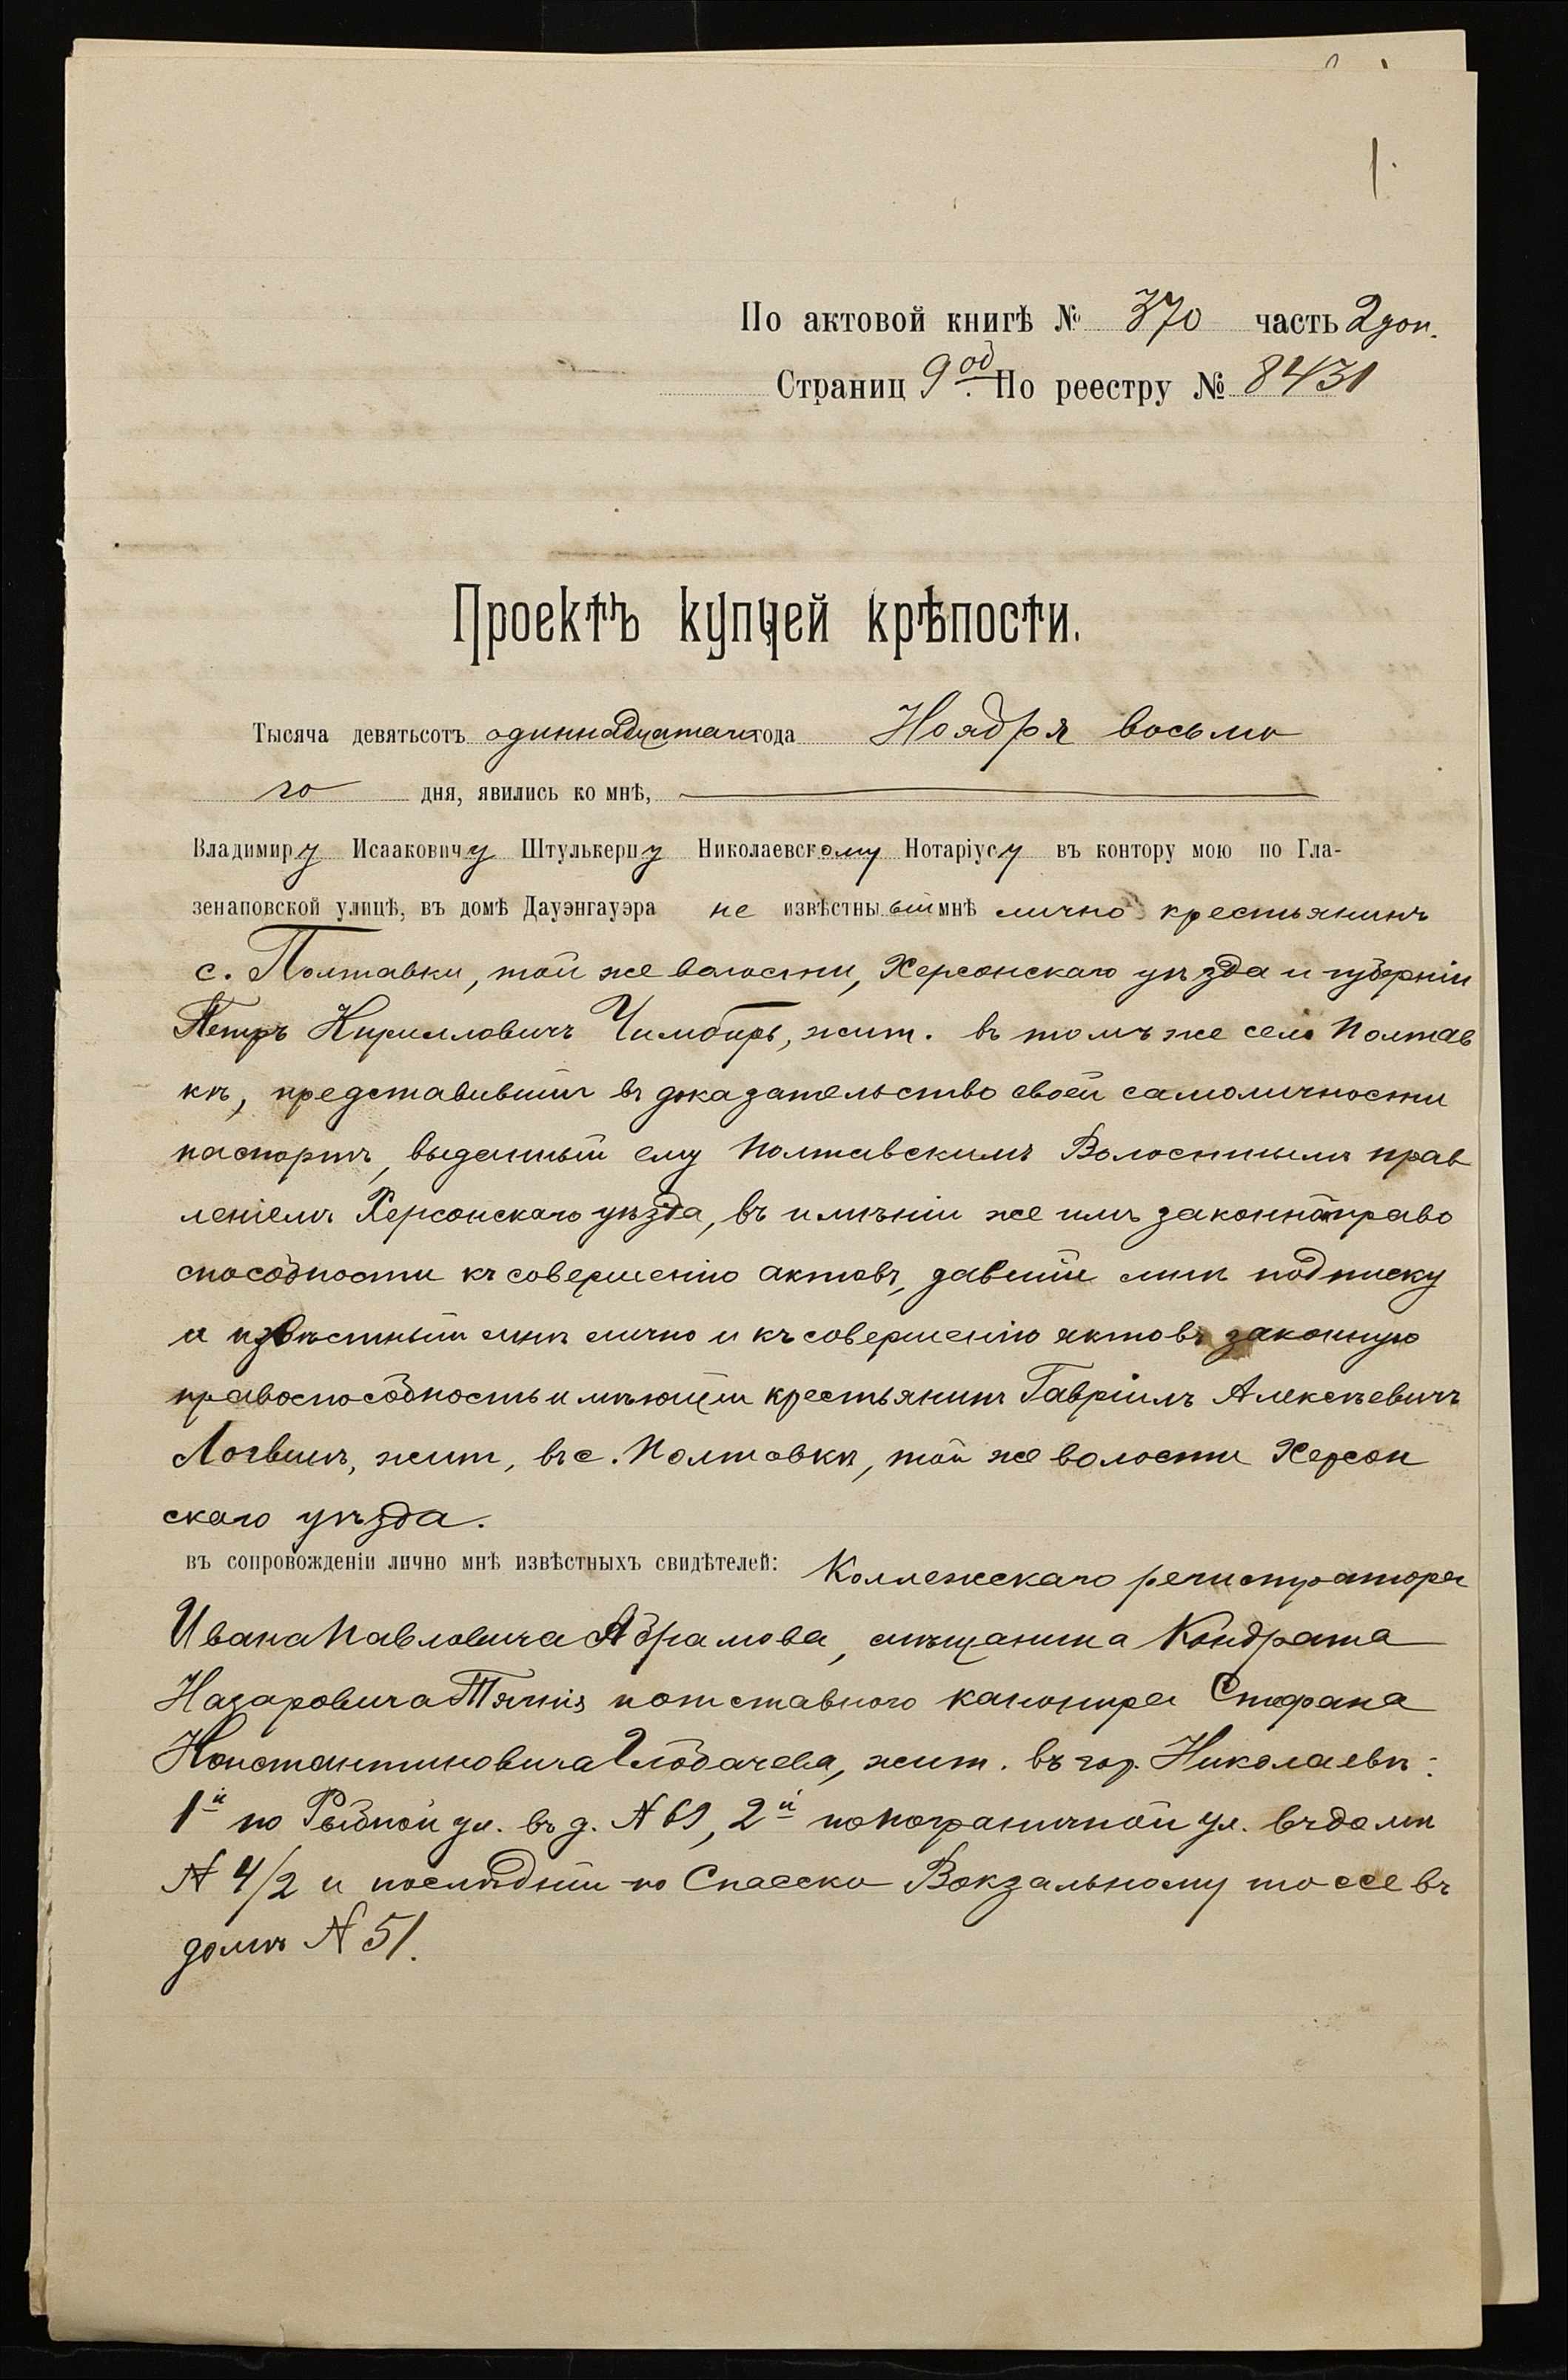 1.
По актовой книгѣ № 370 часть 2 доп.
Страниц 9 об. По реестру № 8431
Проектъ купчей крѣпости.
Тысяча девятьсотъ одиннадцатаго года Ноября восьмо
го дня, явились ко мнѣ,
Владимиру Исааковичу Штулькерцу Николаевскому Нотаріусу въ контору мою по Гла-
зенаповской улицѣ, въ домѣ Дауэнгауэра не извѣстный мнѣ лично крестьянинъ
с. Полтавки, той же волости, Херсонскаго уѣзда и губерніи
Петръ Кирилловичъ Чимбирь, жит. въ томъ же селѣ Полтав
кѣ, представившій въ доказательство своей самоличности
паспортъ, выданный ему Полтавскимъ Волостнымъ прав
леніемъ Херсонскаго уѣзда, въ имѣніи же имъ законной право
способности къ совершенію актовъ, давшій мнѣ подписку
и извѣстный мнѣ лично и къ совершенію актовъ законную
правоспособность имѣющій крестьянинъ Гавріилъ Алексѣевичъ
Логвинъ, жит, въ с. Полтавкѣ, той же волости Херсон
скаго уѣзда.
въ сопровожденіи лично мнѣ извѣстныхъ свидѣтелей: Коллежскаго регистратора
Ивана Павловича Абрамова, мѣщанина Кондрата
Назаровича отставного канонира Стефана
Константиновича Глобачева, жит. въ гор. Николаевѣ:
1й по Рыбной ул. въ д. № 69, 2й по Пограничной ул. въ домѣ
№ 4/2 и послѣдній по Спасско Вокзальному шоссе въ
домѣ № 51.